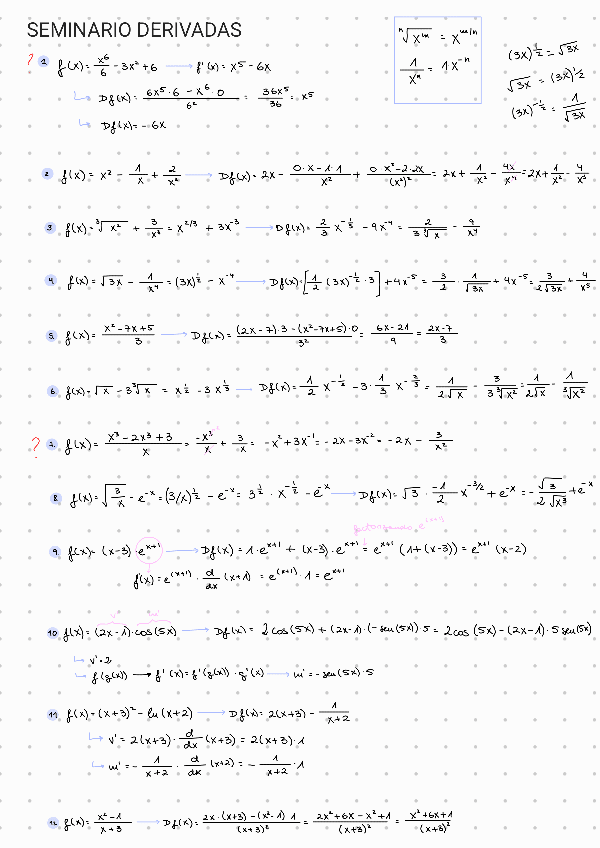 SEMINARIO DERIVADAS
ⁿ√x^m = x^(m/n)
1/xⁿ = 1x^-n
(3x)^(1/2) = √3x
√3x = (3x)^(1/2)
(3x)^(-1/2) = 1/√3x
? 1. f(x) = x⁶/6 - 3x² + 6 → f'(x) = x⁵ - 6x
↳ Df(x) = (6x⁵·6 - x⁶·0)/6² = 36x⁵/36 = x⁵
↳ Df(x) = -6x
2. f(x) = x² - 1/x + 2/x² → Df(x) = 2x - (0·x - 1·1)/x² + (0·x² - 2·2x)/(x²)² = 2x + 1/x² - 4x/x⁴ = 2x + 1/x² - 4/x³
3. f(x) = ³√x² + 3/x³ = x^(2/3) + 3x^-3 → Df(x) = 2/3 x^(-1/3) - 9x^-4 = 2/(3 ³√x) - 9/x⁴
4. f(x) = √3x - 1/x⁴ = (3x)^(1/2) - x^-4 → Df(x) = [1/2 (3x)^(-1/2)·3] + 4x^-5 = 3/2 · 1/√3x + 4x^-5 = 3/(2√3x) + 4/x⁵
5. f(x) = (x² - 7x + 5)/3 → Df(x) = ((2x - 7)·3 - (x² - 7x + 5)·0)/3² = (6x - 21)/9 = (2x - 7)/3
6. f(x) = √x - 3 ³√x = x^(1/2) - 3x^(1/3) → Df(x) = 1/2 x^(-1/2) - 3·1/3 x^(-2/3) = 1/(2√x) - 3/(3 ³√x²) = 1/(2√x) - 1/(³√x²)
? 7. f(x) = (x³ - 2x³ + 3)/x = -x³/x + 3/x = -x² + 3x^-1 = -2x - 3x^-2 = -2x - 3/x²
8. f(x) = √(3/x) - e^-x = (3/x)^(1/2) - e^-x = 3^(1/2) · x^(-1/2) - e^-x → Df(x) = √3 · -1/2 x^(-3/2) + e^-x = -√3/(2√x³) + e^-x
factorizando e^(x+1)
9. f(x) = (x-3)·e^(x+1) → Df(x) = 1·e^(x+1) + (x-3)·e^(x+1) = e^(x+1) (1+(x-3)) = e^(x+1) (x-2)
f(x) = e^(x+1) · d/dx (x+1) = e^(x+1) · 1 = e^(x+1)
10. f(x) = (2x-1)·cos(5x) → Df(x) = 2cos(5x) + (2x-1)·(-sen(5x))·5 = 2cos(5x) - (2x-1)·5sen(5x)
↳ v' = 2
↳ f(g(x)) → f'(x) = f'(g(x))·g'(x) → m' = -sen(5x)·5
11. f(x) = (x+3)² - ln(x+2) → Df(x) = 2(x+3) - 1/(x+2)
↳ v' = 2(x+3)· d/dx (x+3) = 2(x+3)·1
↳ m' = -1/(x+2) · d/dx (x+2) = -1/(x+2) ·1
12. f(x) = (x²-1)/(x+3) → Df(x) = (2x·(x+3) - (x²-1)·1)/(x+3)² = (2x² + 6x - x² + 1)/(x+3)² = (x² + 6x + 1)/(x+3)²